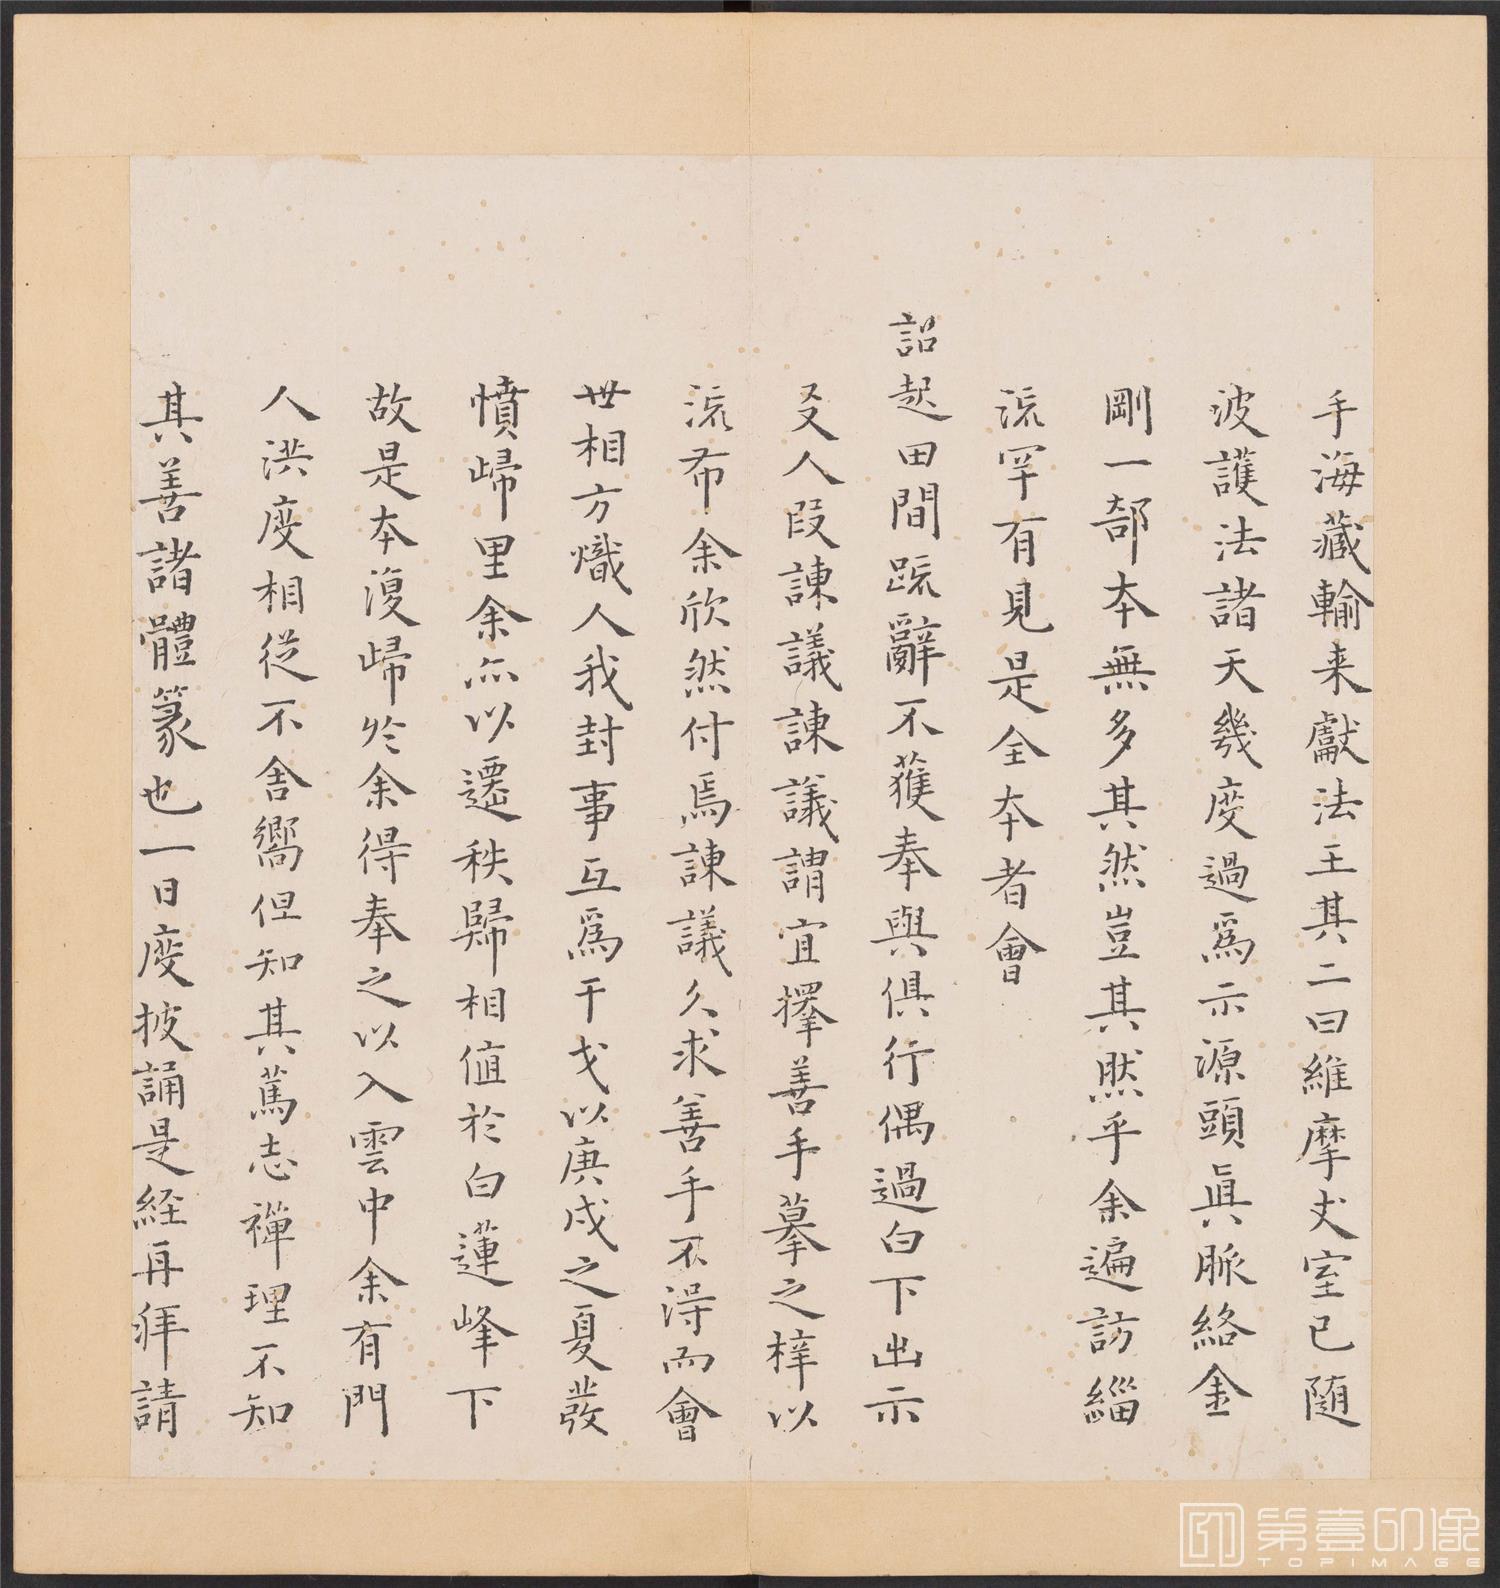 手海藏輸来獻法王其二曰維摩丈室已随
波護法諸天幾度過爲示源頭眞脈絡金
剛一部本無多其然豈其然乎余遍訪緇
流罕有見是全本者會
詔起田間疏辭不獲奉與俱行偶過白下出示
及人段諌議諌議謂宜擇善手摹之梓以
流布余欣然付焉諌議久求善手不得而會
世相方熾人我封事互爲干戈以庚戌之夏發
憤歸里余亦以遷秩歸相值於白蓮峰下
故是本復歸於余得奉之以入雲中余有門
人洪度相従不舎嚮但知其篤志禪理不知
其善諸體篆也一日度披誦是経再拜請
第壹印像
TOPIMAGE